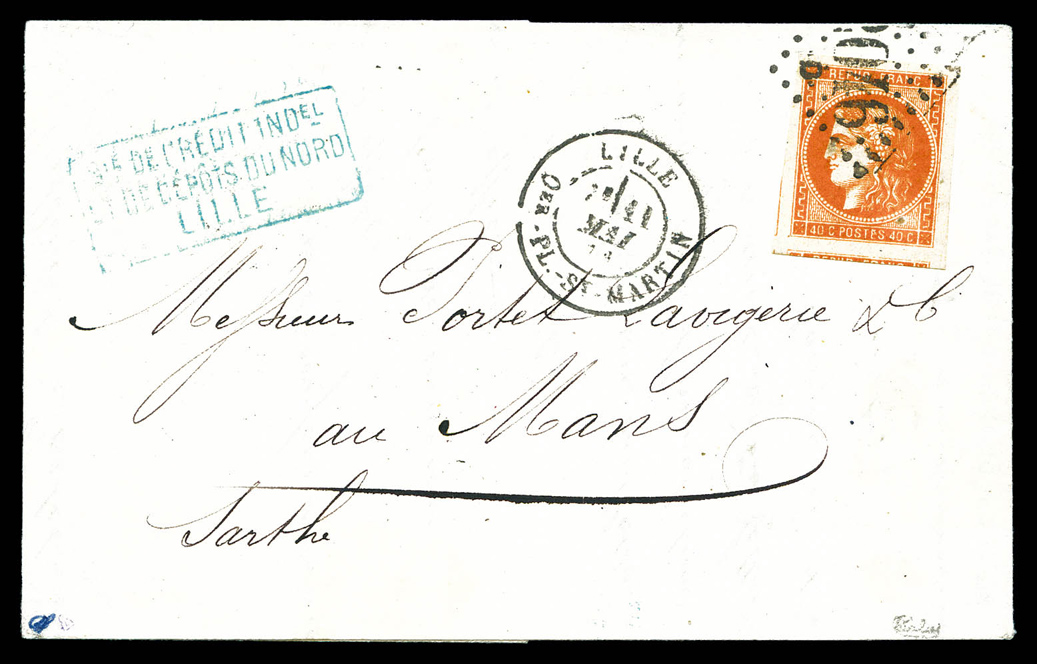 Sté DE CRÉDIT INDEL
ET DE DÉPÔTS DU NORD
LILLE
LILLE
11
MAI
QER-PL.-ST-MARTIN
REPUB. FRANC.
40 C POSTES 40 C
Messieurs Portet Lavigerie & C
au Mans
Sarthe